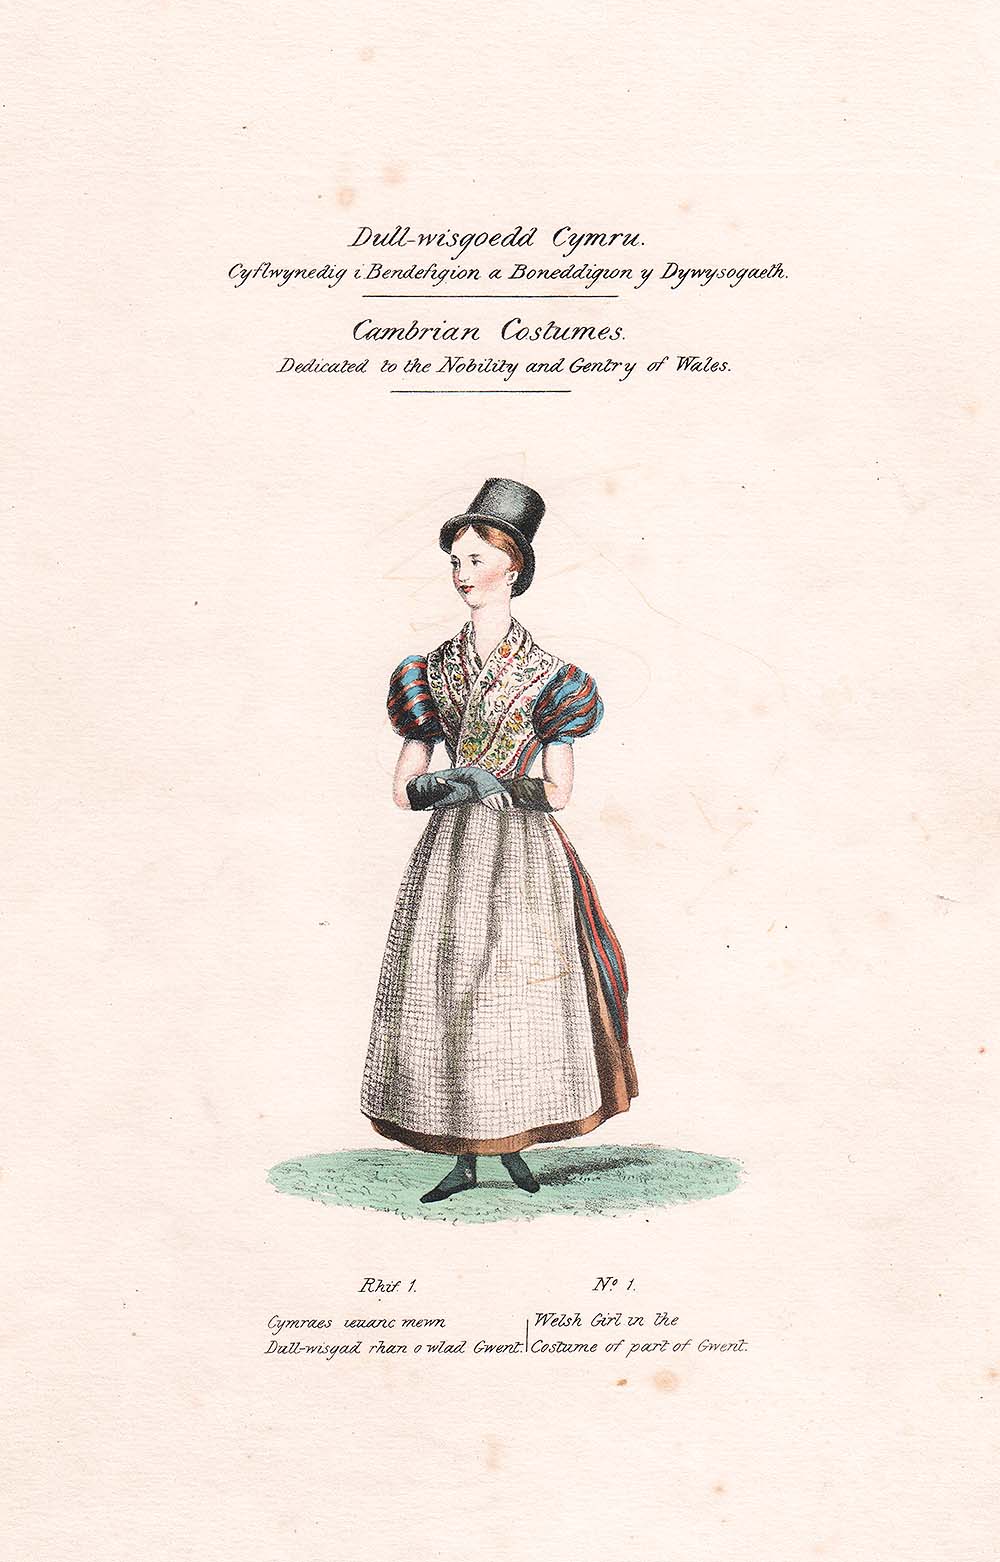 Dull-wisgoedd Cymru.
Cyflwynedig i Bendefigion a Boneddigion y Dywysogaeth.
Cambrian Costumes.
Dedicated to the Nobility and Gentry of Wales.
Rhif. 1.
Cymraes ieuanc mewn
Dull-wisgad rhan o wlad Gwent.
Nº 1.
Welsh Girl in the
Costume of part of Gwent.